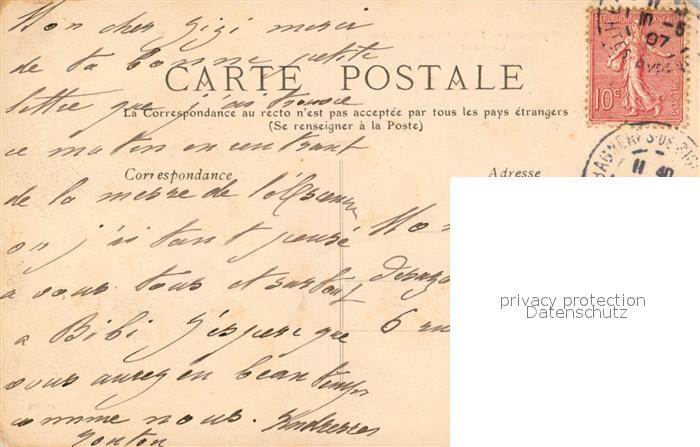 Mon cher gigi merci
de ta bonne petite
CARTE POSTALE
lettre que j'ai trouvée
La Correspondance au recto n'est pas acceptée par tous les pays étrangers
(Se renseigner à la Poste)
ce matin en rentrant
Correspondance
Adresse
de la messe de l'
ou j'ai tant pensé
a vous tous et surtout
a Bibi J'espere que
vous aurez un beau temps
comme nous.
tonton
Mon
6 ru
REPUBLIQUE FRANÇAISE
10c
POSTES
07
BAGNERES-DE-BIG
11
privacy protection
Datenschutz